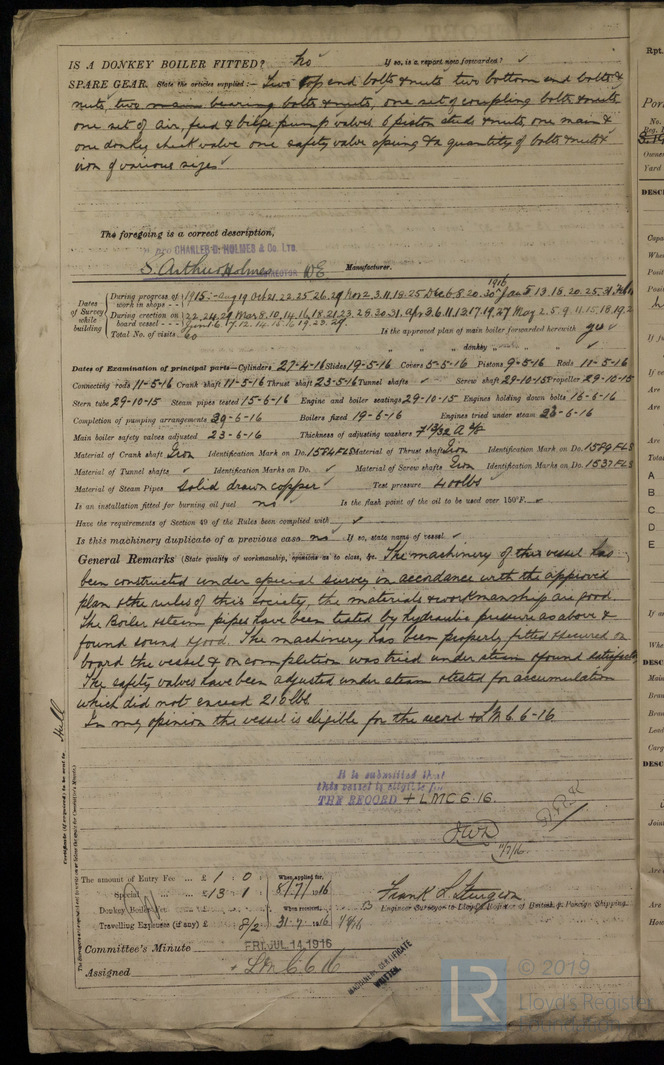 IS A DONKEY BOILER FITTED? No If so, is a report now forwarded? ✓
SPARE GEAR. State the articles supplied:— Two top end bolts & nuts two bottom end bolts &
nuts, two main bearing bolts & nuts, one set of coupling bolts & nuts
one set of air, feed & bilge pump valves 6 piston studs & nuts, one main &
one donkey check valve one safety valve spring & a quantity of bolts & nuts &
iron of various sizes ✓
The foregoing is a correct description,
pro CHARLES D. HOLMES & Co. LTD.
S. Arthur Holmes DIRECTOR Manufacturer.
1916
Dates of Survey while building
During progress of work in shops - - 1915:- Aug 19 Oct 21. 22. 25. 26. 29 Nov 2. 3. 11. 18. 25 Dec 6. 8. 20. 30 Jan 5 13. 18. 20. 25. 31 Feb
During erection on board vessel - - - 22. 24. 29 Mar 8. 10. 14. 16. 18. 21. 23. 28. 30. 31. Apr 3. 6. 11. 12. 17. 19. 27 May 2. 5. 9. 11. 15. 18. 19. 2
Total No. of visits 60 Is the approved plan of main boiler forwarded herewith yes ✓
" " " donkey " " " ✓
Dates of Examination of principal parts—Cylinders 27-4-16 Slides 19-5-16 Covers 5-5-16 Pistons 9-5-16 Rods 11-5-16
Connecting rods 11-5-16 Crank shaft 11-5-16 Thrust shaft 23-5-16 Tunnel shafts ✓ Screw shaft 29-10-15 Propeller 29-10-15
Stern tube 29-10-15 Steam pipes tested 15-6-16 Engine and boiler seatings 29-10-15 Engines holding down bolts 16-6-16
Completion of pumping arrangements 29-6-16 Boilers fixed 19-6-16 Engines tried under steam 23-6-16
Main boiler safety valves adjusted 23-6-16 Thickness of adjusting washers
Material of Crank shaft Iron Identification Mark on Do. 1584 FLS Material of Thrust shaft Iron Identification Mark on Do. 1589 FLS
Material of Tunnel shafts ✓ Identification Marks on Do. ✓ Material of Screw shafts Iron Identification Marks on Do. 1537 FLS
Material of Steam Pipes Solid drawn copper ✓ Test pressure 400 lbs
Is an installation fitted for burning oil fuel no ✓ Is the flash point of the oil to be used over 150°F. ✓
Have the requirements of Section 49 of the Rules been complied with ✓
Is this machinery duplicate of a previous case no ✓ If so, state name of vessel ✓
General Remarks (State quality of workmanship, opinions as to class, &c. The machinery of this vessel has
been constructed under special survey in accordance with the approved
plan & the rules of this Society, the materials & workmanship are good.
The Boiler & steam pipes have been tested by hydraulic pressure as above &
found sound & good. The machinery has been properly fitted & secured on
board the vessel & on completion was tried under steam & found satisfactory
The safety valves have been adjusted under steam & tested for accumulation
which did not exceed 210 lbs.
In my opinion the vessel is eligible for the record + LMC 6-16
Hull
Certificate (if required) to be sent to
It is submitted that
this vessel is eligible for
THE RECORD + LMC 6.16.
JWD
11/7/16.
The amount of Entry Fee ... £ 1 : 0 : When applied for,
Special ... £ 13 : 1 : 8/7/1916
Donkey Boiler Fee ... £ : : When received,
Travelling Expenses (if any) £ : 8/2 31-7-1916
Frank L Sturgeon
Engineer Surveyor to Lloyd's Register of British & Foreign Shipping.
Committee's Minute FRI. JUL 14 1916
Assigned + LMC 6.16
MACHINERY CERTIFICATE
WRITTEN.
Rpt.
No.
DESC
A
B
C
D
E
LR
© 2019
Lloyd's Register
Foundation